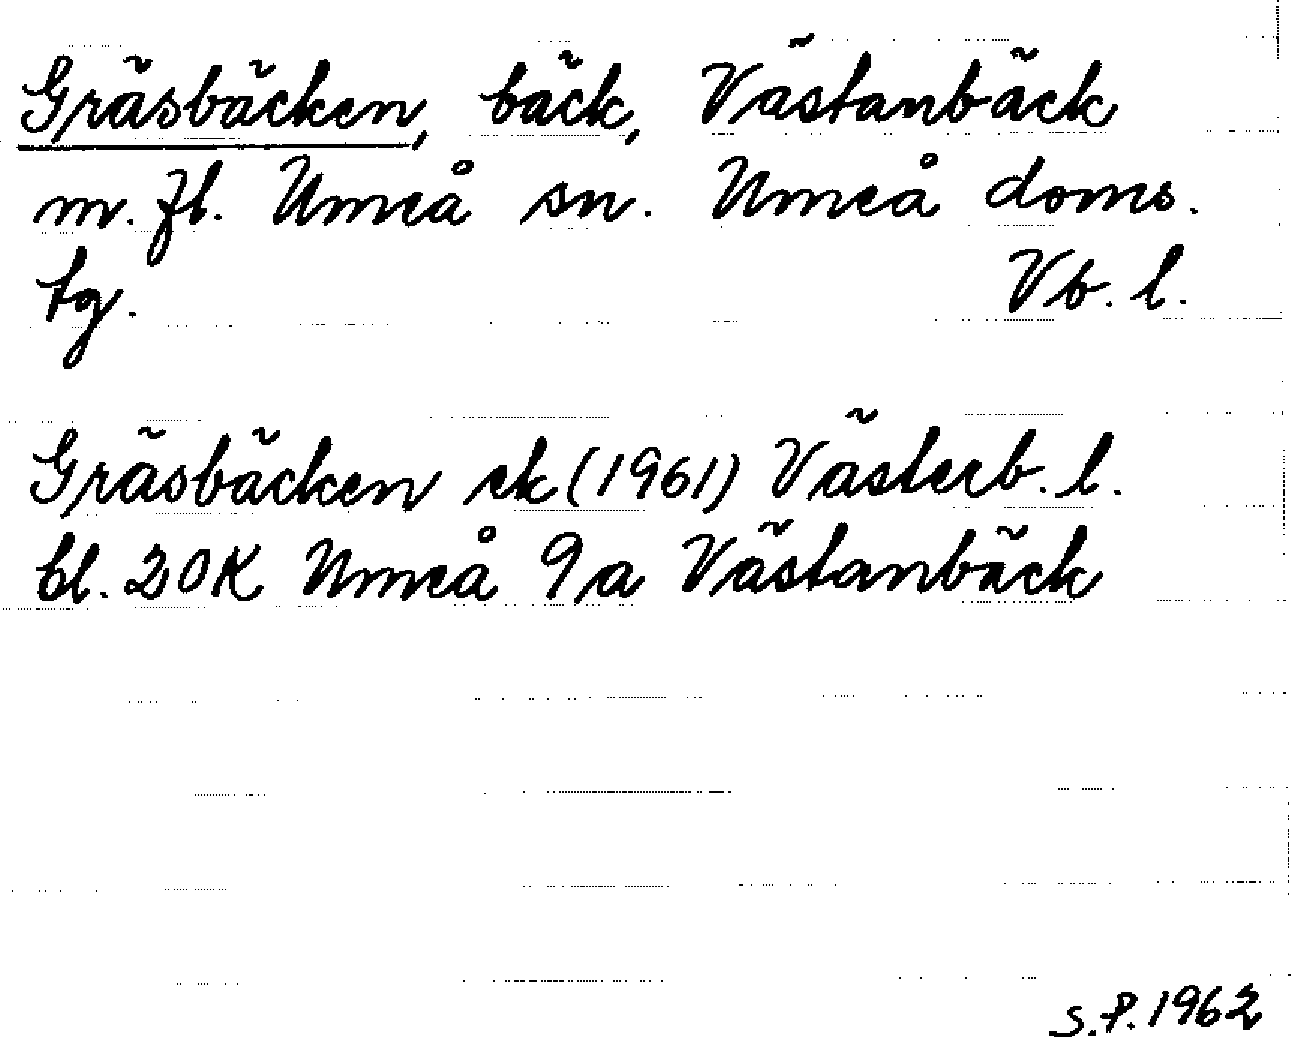 Gräsbäcken, bäck, Västanbäck
m. fl. Umeå sn. Umeå doms.
tg. Vb. l.
Gräsbäcken ek (1961) Västerb. l.
bl. 20K Umeå 9a Västanbäck
S.P. 1962